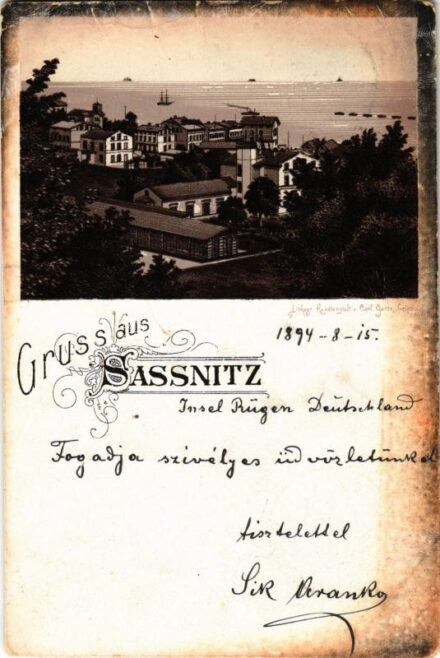 Lithogr. Kunstanstalt v. Carl Garte, Leipzig
1894-8-15.
Gruss aus
SASSNITZ
Insel Rügen Deutschland
Fogadja szivélyes üdvözletünket
tisztelettel
Sik Aranka